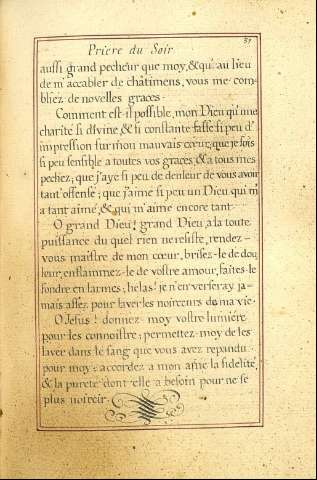 37
Priere du Soir
aussi grand pecheur que moy, & qu'au lieu
de m'accabler de châtimens, vous me com-
bliez de novelles graces.
Comment est-il possible, mon Dieu qu'une
charité si divine, & si constante fasse si peu d'
impression sur mon mauvais cœur, que je sois
si peu sensible a toutes vos graces, & a tous mes
pechez; que j'aye si peu de douleur de vous avoir
tant offensé; que j'aime si peu un Dieu qui m'
a tant aimé, & qui m'aime encore tant
O grand Dieu! grand Dieu, a la toute
puissance du quel rien ne resiste, rendez-
vous maistre de mon cœur, brisez-le de dou
leur, enflammez-le de vostre amour, faites-le
fondre en larmes; helas! je n'en verseray ja-
mais assez pour laver les noirceurs de ma vie.
O Jesus! donnez-moy vostre lumiére
pour les connoistre; permettez-moy de les
laver dans le sang que vous avez repandu
pour moy; accordez a mon ame la fidelité,
& la pureté dont elle a besoin pour ne se
plus noircir.